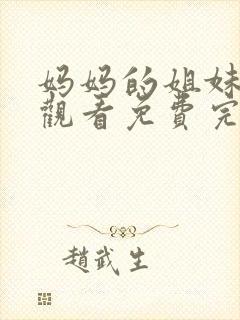 妈妈的姐妹
觀看免費完
趙武生